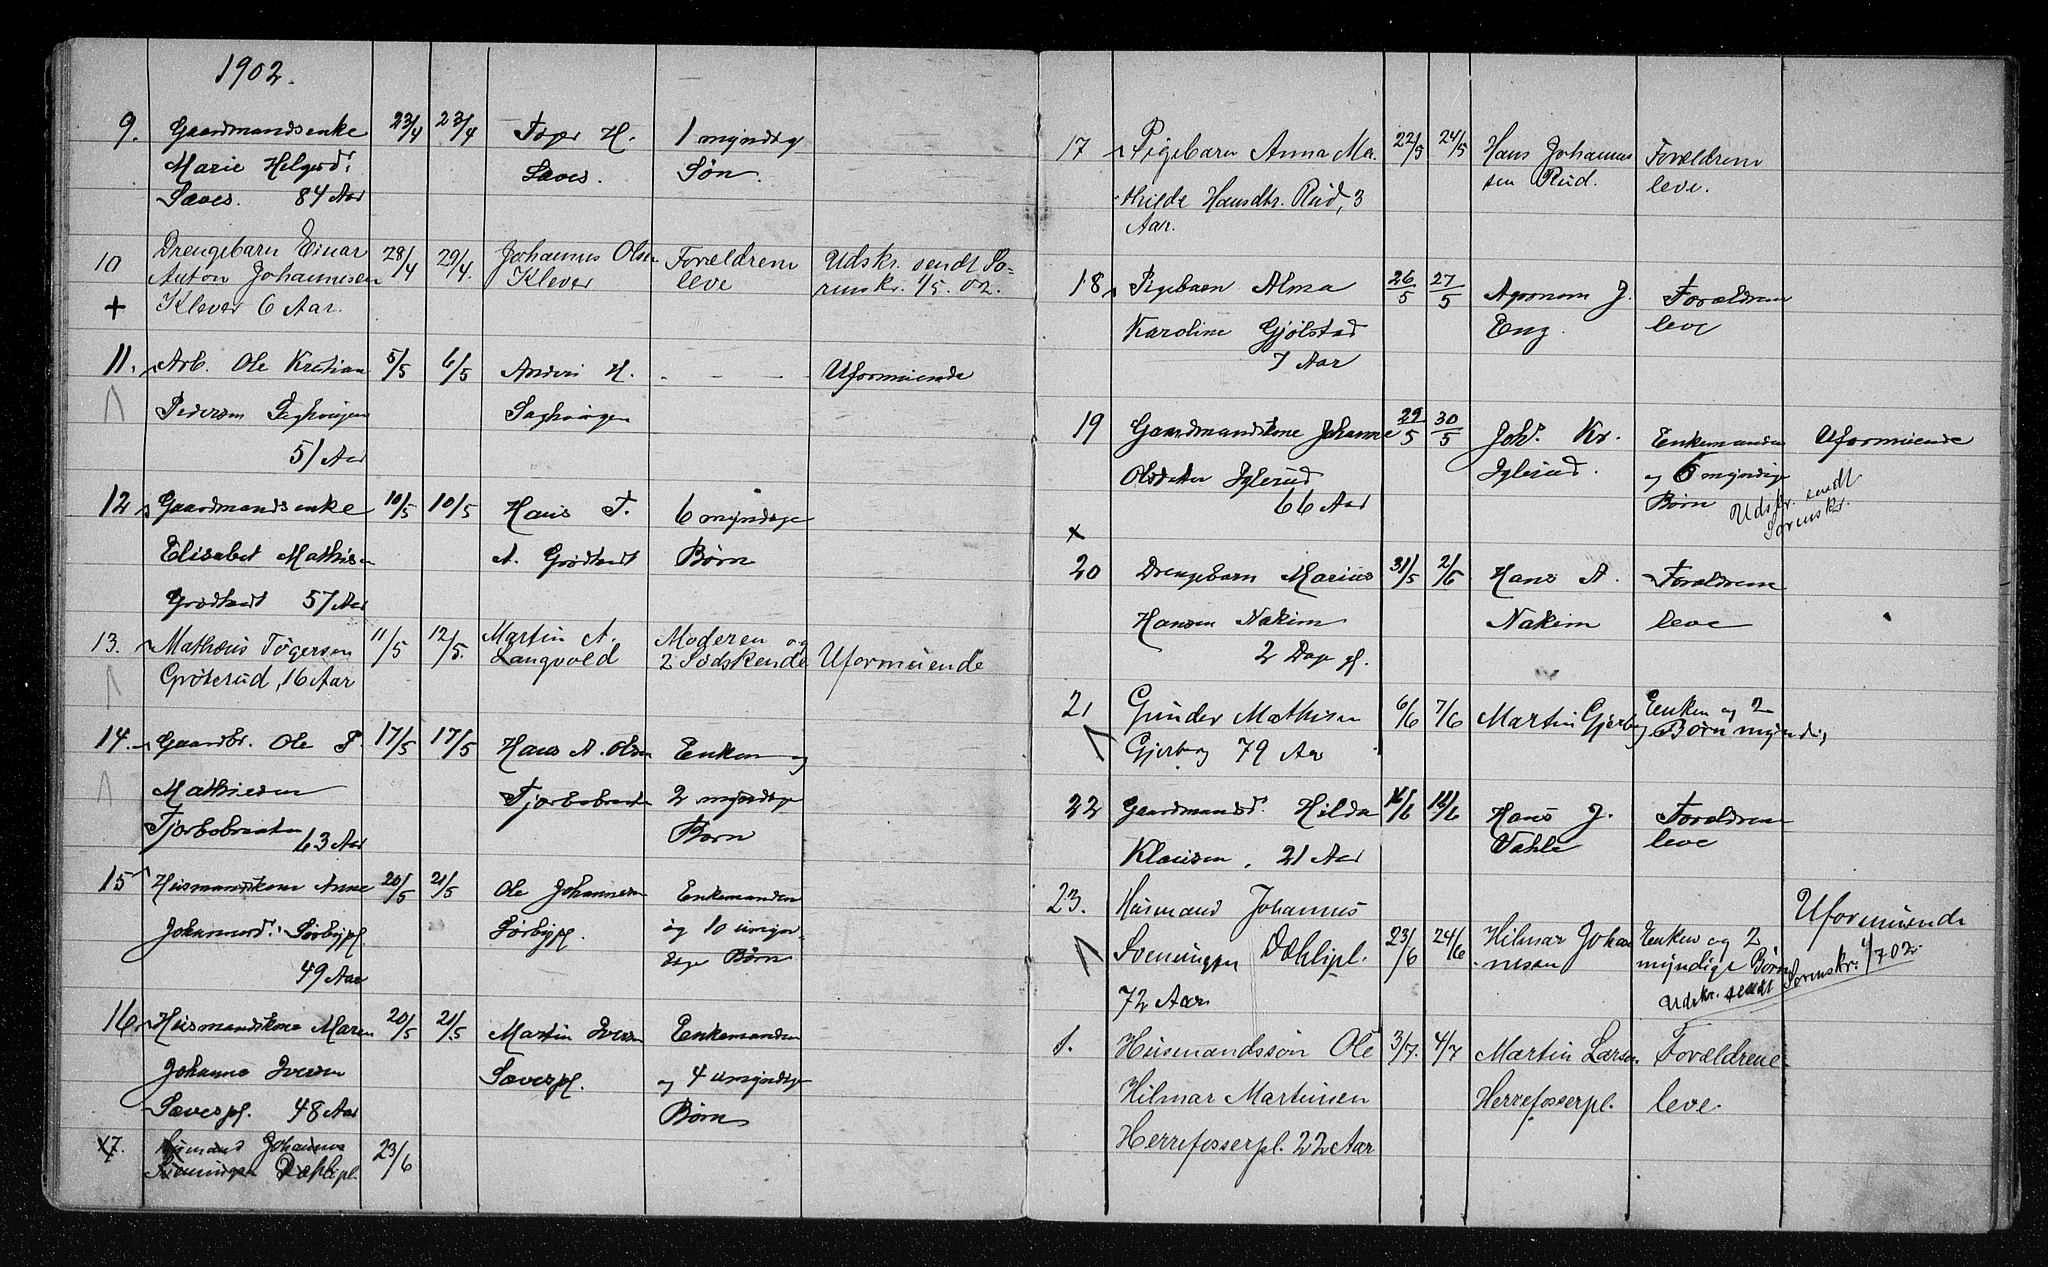 1902.
9. Gaardmandsenke 23/4 23/4 Toger H. 1 myndig
Marie Helgesd: Sæves. Søn.
Sæves. 84 Aar
10 Drengebarn Einar 28/4 29/4. Johannes Olsen Forældrene Udskr. sendt So-
Anton Johannesen Klever leve renskr. 1/5. 02.
+ Klever 6 Aar.
11. Arb. Ole Kristian 5/5 6/5 Anders H. - - - Uformuende
Pedersen Saghaugen Saghaugen
51 Aar
12 Gaardmandsenke 10/5 10/5 Hans T. 6 myndige
Elisabet Mathisen A. Grødtvedt Børn
Grødtvedt 57 Aar
13. Mathæus Tøgersen 11/5 12/5. Martin A. Moderen og
Grøterud, 16 Aar Langvold 2 Sødskende Uformuende
14. Gaardbr. Ole P. 17/5 17/5 Hans A. Olsen Enken og
Mathiesen Fjorbobraaten 2 myndige
Fjorbobraaten 63 Aar Børn
15 Husmandskone Anne 20/5 21/5 Ole Johannesen Enkemanden
Johannesd: Sørbypl. Sørbypl. og 10 umyn-
49 Aar dige Børn
16 Husmandskone Maren 20/5 21/5 Martin Iversen Enkemanden
Johanne Iversen Sævespl. og 4 umyndige
Sævespl. 48 Aar Børn
17. Husmand Johannes 23/6
Sveningsen Dæhlipl.
17 Pigebarn Anna Ma. 22/5 24/5 Hans Johannes Forældrene
thilde Hansdtr. Rud, 3 sen Rud. leve.
Aar.
18 Pigebarn Alma 26/5 27/5 Agronom J. Forældrene
Karoline Gjølstad Eng. leve
7 Aar
19 Gaardmandskone Johanne 29/5 30/5 Joh. Kr. Enkemanden Uformuende
Olsdatter Iglerud Iglerud. og 6 myndige
66 Aar Børn Udskr. sendt
Sorenskr.
x
20 Drengebarn Marius 31/5 2/6 Hans A. Forældrene
Hansen Nakim Nakim leve
2 Dage gl.
21 Gunder Mathisen 6/6 7/6 Martin Gjerberg Enken og 2
Gjerberg 79 Aar Børn myndig
22 Gaardmandsd. Hilda 16/6 18/6 Hans J. Forældrene
Klausen, 21 Aar Dahle leve
23. Husmand Johannes Uformuende
Sveningsen Dæhlipl. 23/6 24/6 Hilmar Johan Enken og 2
72 Aar nesen myndige Børn
Udskr. sendt Sorenskr. 4/7 02.
1. Husmandssøn Ole 3/7. 4/7 Martin Larsen Forældrene
Hilmar Martinsen Herrefosserpl. leve.
Herrefosserpl. 22 Aar